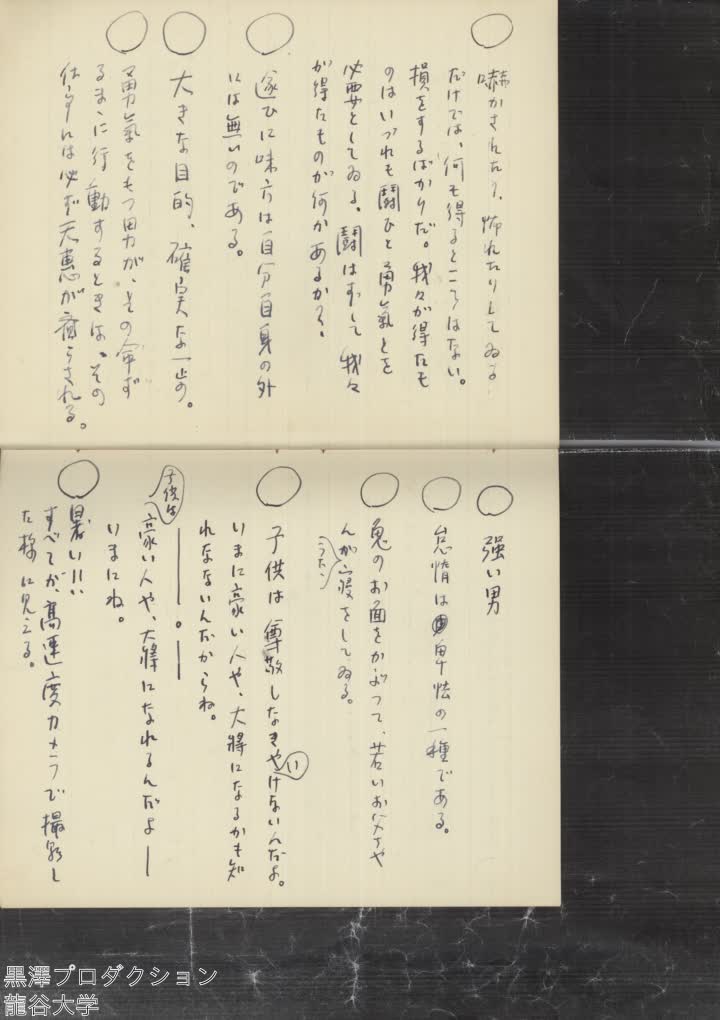 ○ 嚇かされたり、怖れたりしてゐる
だけでは、何も得るところはない。
損をするばかりだ。我々が得たも
のはいづれも闘ひと勇氣とを
必要としてゐる。闘はずして我々
が得たものが何かあるか?。
○ 遂ひに味方は自分自身の外
には無いのである。
○ 大きな目的、確実な一歩。
○ 勇氣をもつ男が、その命ず
るまゝに行動するときは、その
仕事には必ず天惠が齎らされる。
○ 強い男
○ 怠惰は卑怯の一種である。
○ 鬼のお面をかぶつて、若いお父さ
んがうたゝ寝をしてゐる。
○ 子供は尊敬しなきやいけないんだよ。
いまに豪い人や、大將になるかも知
れなないんだからね。
――。――
子供は豪い人や、大將になれるんだよ―
いまにね。
○ 暑い!!
すべてが、高速度カメラで撮影し
た様に見える。
黒澤プロダクション
龍谷大学